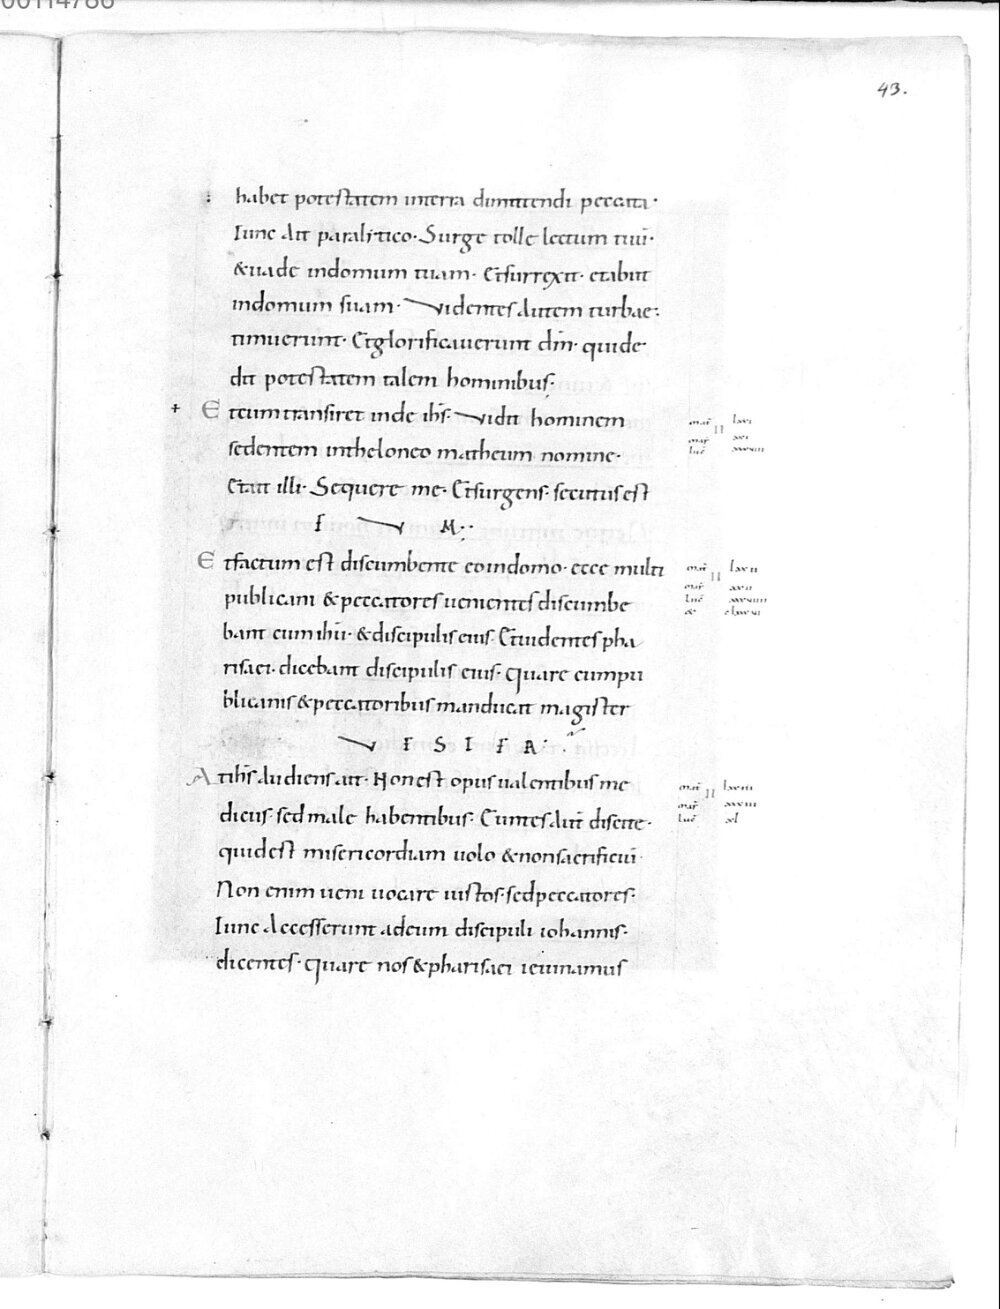 00114786
43.
habet potestatem interra dimittendi peccata·
Tunc Ait paralitico· Surge tolle lectum tuū·
&uade indomum tuam· Etsurrexit· etabiit
indomum suam· Videntes Autem turbae:
timuerunt· Etglorificauerunt dm̄· quide
dit potestatem talem hominibus·
+ E tcum transiret inde ihs̄· Vidit hominem
sedentem intheloneo matheum nomine·
Etait illi· Sequere me· Etsurgens· secutus est
E V M··
E tfactum est discumbente eoindomo· ecce multi
publicani &peccatores uenientes discumbe
bant cum ihū· &discipulis eius· Etuidentes pha
risaei· dicebant discipulis eius· Quare cumpu
blicanis &peccatoribus manducat magister
V E S T E R
A tihs̄ Audiens ait· Nonest opus ualentibus me
dicus· sed male habentibus· Euntes Aut̄ discite·
quidest misericordiam uolo &nonsacrificiū·
Non enim ueni uocare iustos· sedpeccatores·
Tunc Accesserunt adeum discipuli iohannis·
dicentes· Quare nos &pharisaei ieiunamus